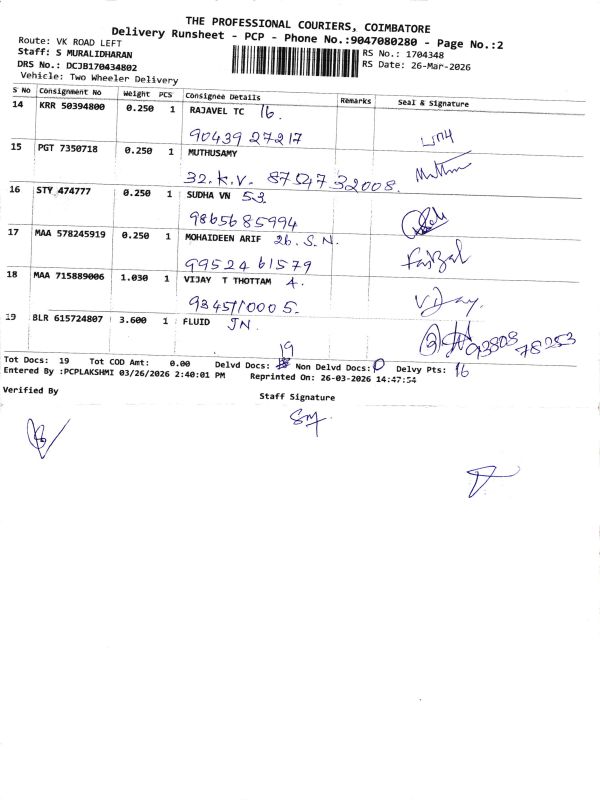 THE PROFESSIONAL COURIERS, COIMBATORE
Delivery Runsheet - PCP - Phone No.:9047080280 - Page No.:2
Route: VK ROAD LEFT
RS No.: 1704348
Staff: S MURALIDHARAN
RS Date: 26-Mar-2026
DRS No.: DCJB170434802
Vehicle: Two Wheeler Delivery
S No Consignment No Weight PCS Consignee Details Remarks Seal & Signature
14 KRR 50394800 0.250 1 RAJAVEL TC 16.
90439 27217
15 PGT 7350718 0.250 1 MUTHUSAMY
32. K.V. 87547 32008.
16 STY 474777 0.250 1 SUDHA VN 53.
98656 85994
17 MAA 578245919 0.250 1 MOHAIDEEN ARIF 26. S. N.
99524 61579 Faizal
18 MAA 715889006 1.030 1 VIJAY T THOTTAM 4.
98451 10005. Vijay.
19 BLR 615724807 3.600 1 FLUID JN.
93803 78253
19
Tot Docs: 19 Tot COD Amt: 0.00 Delvd Docs: Non Delvd Docs: 0 Delvy Pts: 16
Entered By :PCPLAKSHMI 03/26/2026 2:40:01 PM Reprinted On: 26-03-2026 14:47:54
Verified By
Staff Signature